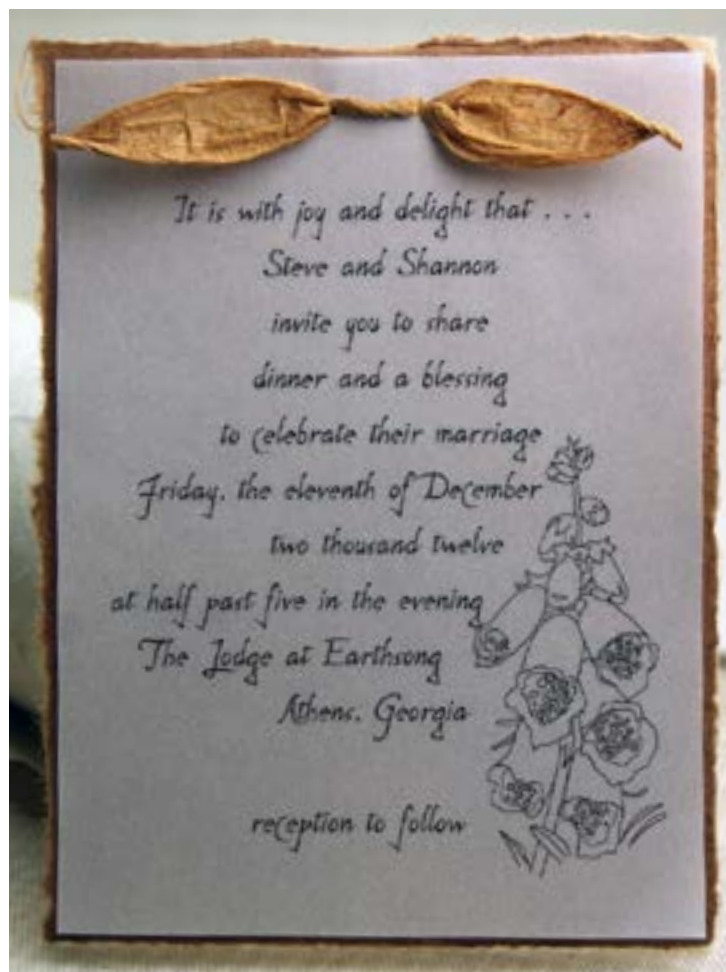 It is with joy and delight that . . .
Steve and Shannon
invite you to share
dinner and a blessing
to celebrate their marriage
Friday, the eleventh of December
two thousand twelve
at half past five in the evening
The Lodge at Earthsong
Athens, Georgia
reception to follow